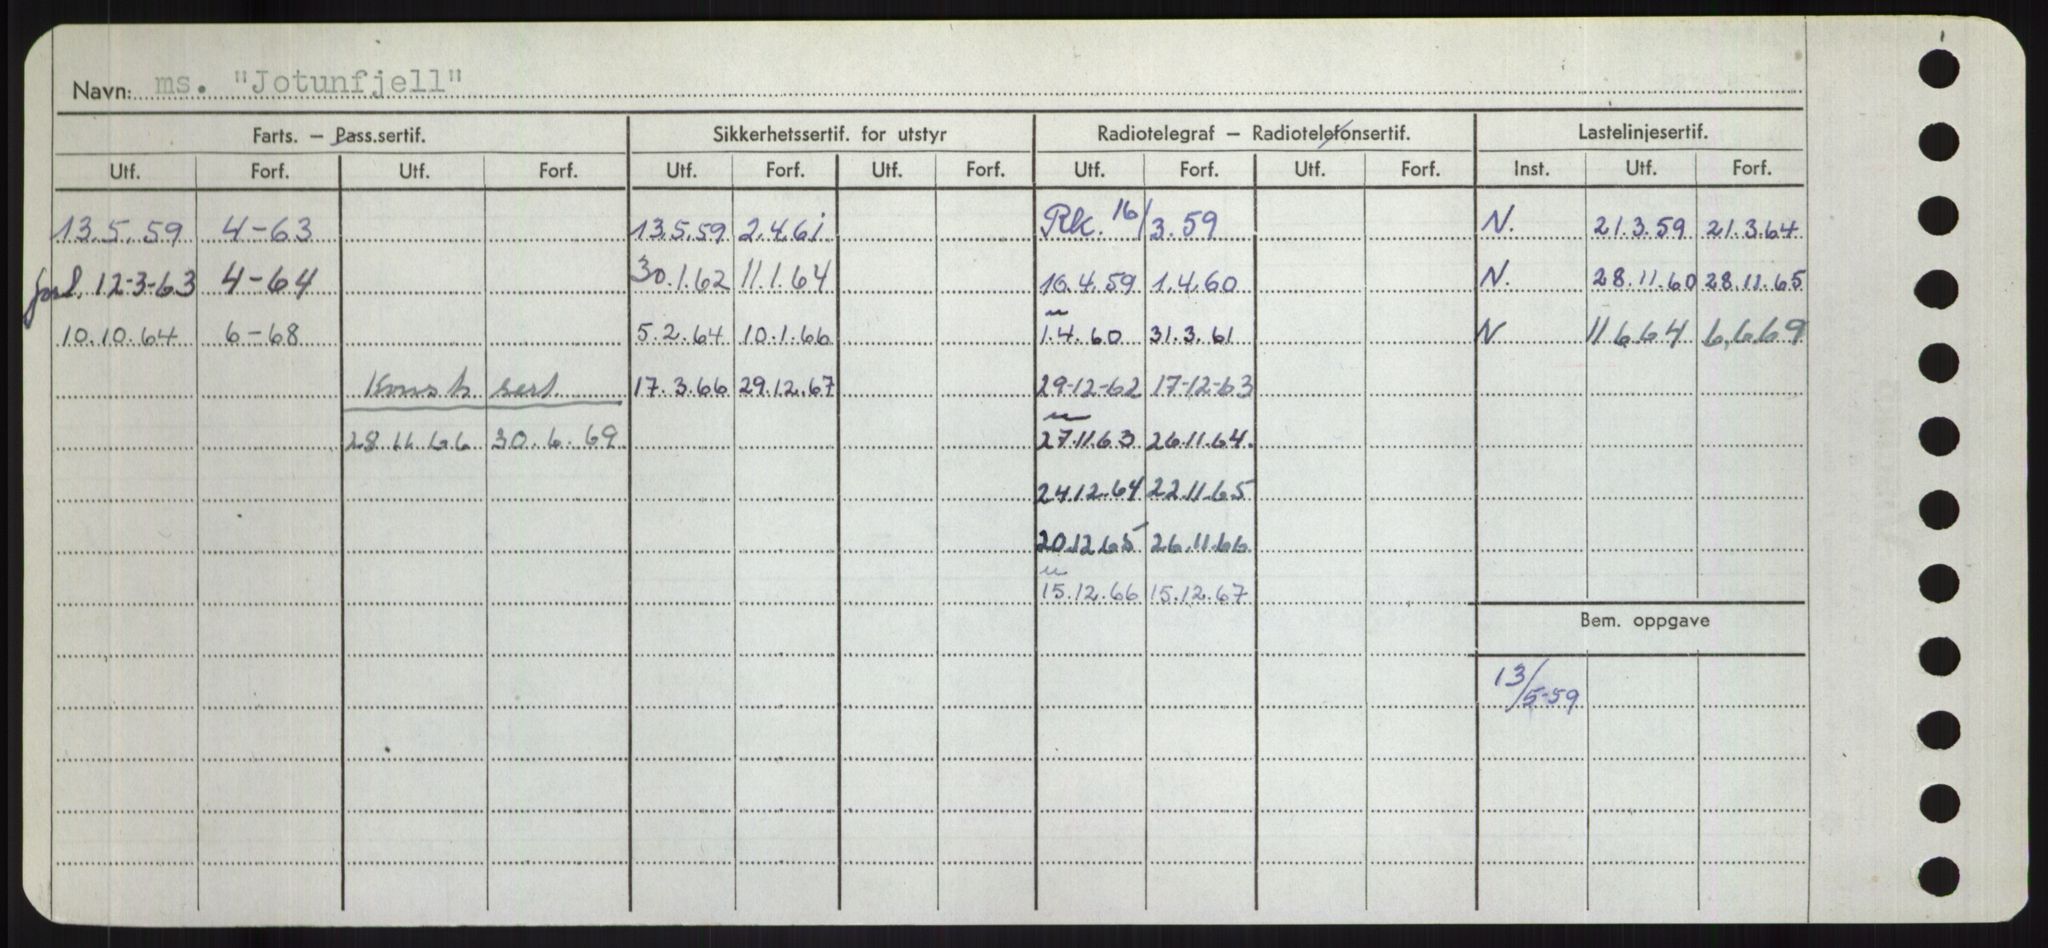 Navn: ms. "Jotunfjell"
Farts. — Pass.sertif. Sikkerhetssertif. for utstyr Radiotelegraf — Radiotelefonsertif. Lastelinjesertif.
Utf. Forf. Utf. Forf. Utf. Forf. Utf. Forf. Utf. Forf. Utf. Forf. Inst. Utf. Forf.
13.5.59 4-63 13.5.59 2.4.61 Rk. 16/3.59 N. 21.3.59 21.3.64
forl. 12-3-63 4-64 30.1.62 11.1.64 16.4.59 1.4.60 N. 28.11.60 28.11.65
10.10.64 6-68 5.2.64 10.1.66 1.4.60 31.3.61 N 11664 6.6.69
Konstr sert. 17.3.66 29.12.67 29-12-62 17-12-63
28.11.66 30.6.69 27.11.63 26.11.64.
24.12.64 22.11.65
20.12.65 26.11.66
15.12.66 15.12.67
Bem. oppgave
13/5-59